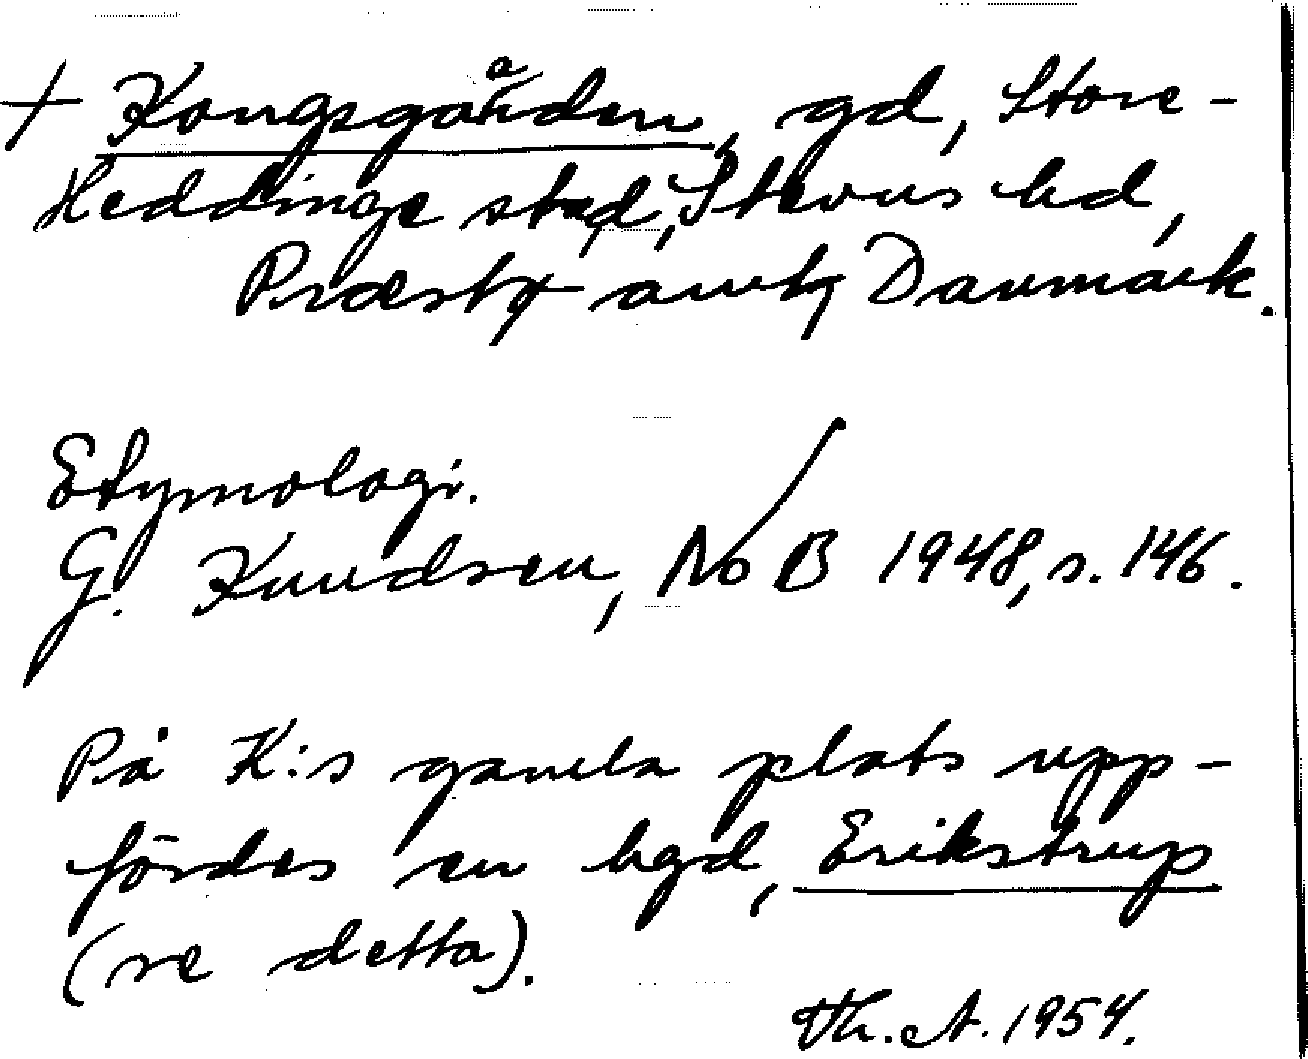 + Kongsgaarden, gd, Store-
Heddinge stad, Stevns hd,
Præstø amt, Danmark.
Etymologi.
G. Knudsen, NoB 1948, s. 146.
På K:s gamla plats upp-
fördes en hgd, Erikstrup
(se detta).
Th. A. 1954.